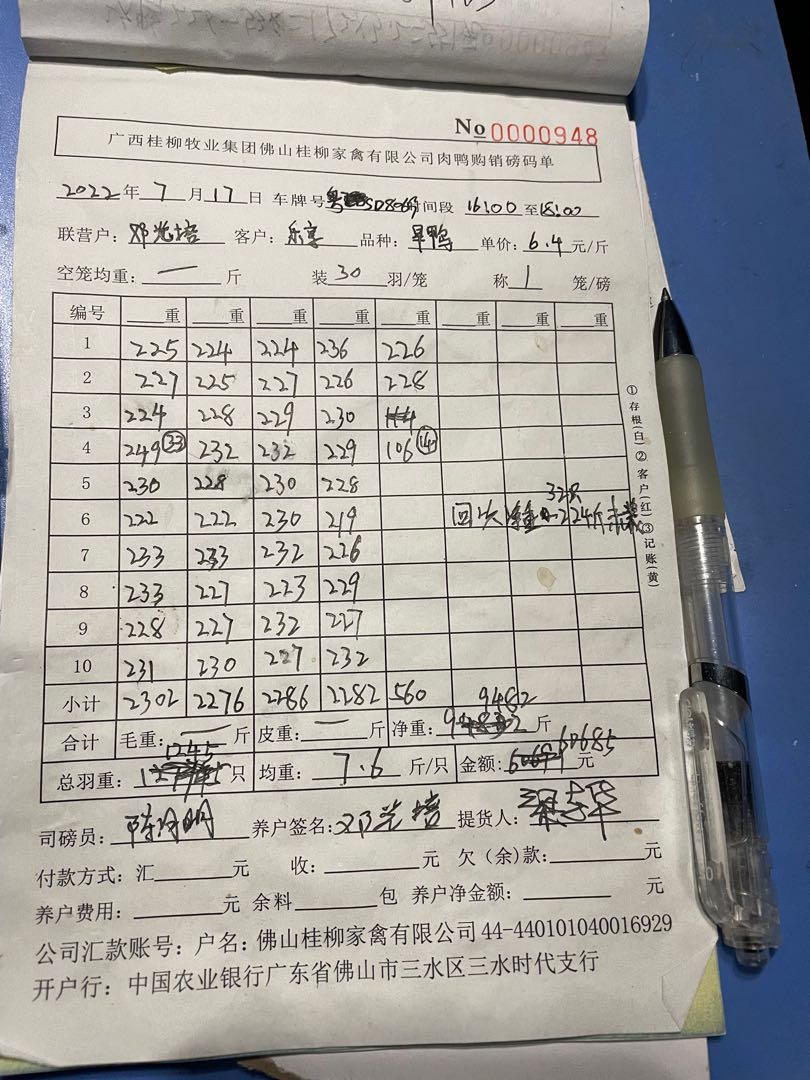 No 0000948
广西桂柳牧业集团佛山桂柳家禽有限公司肉鸭购销磅码单
2022年 7 月 17 日 车牌号 粤 间段 16:00 至 18:00
联营户: 邓光培 客户: 乐享 品种: 旱鸭 单价: 6.4 元/斤
空笼均重: — 斤 装 30 羽/笼 称 1 笼/磅
编号 重 重 重 重 重 重 重 重
1 225 224 224 236 226
2 227 225 227 226 228
3 224 228 229 230
4 249 33 232 232 229 106 14
5 230 228 230 228
6 222 222 230 219 回 32只 224斤
7 233 233 232 226
8 233 227 223 229
9 228 227 232 227
10 231 230 227 232
小计 2302 2276 2286 2282 560 9482
合计 毛重: — 斤 皮重: — 斤 净重: 斤
总羽重: 1245 只 均重: 7.6 斤/只 金额: 60685 元
司磅员: 养户签名: 邓光培 提货人:
付款方式: 汇 元 收: 元 欠(余)款: 元
养户费用: 元 余料 包 养户净金额: 元
公司汇款账号: 户名: 佛山桂柳家禽有限公司 44-440101040016929
开户行: 中国农业银行广东省佛山市三水区三水时代支行
①存根(白)②客户(红)③记账(黄)